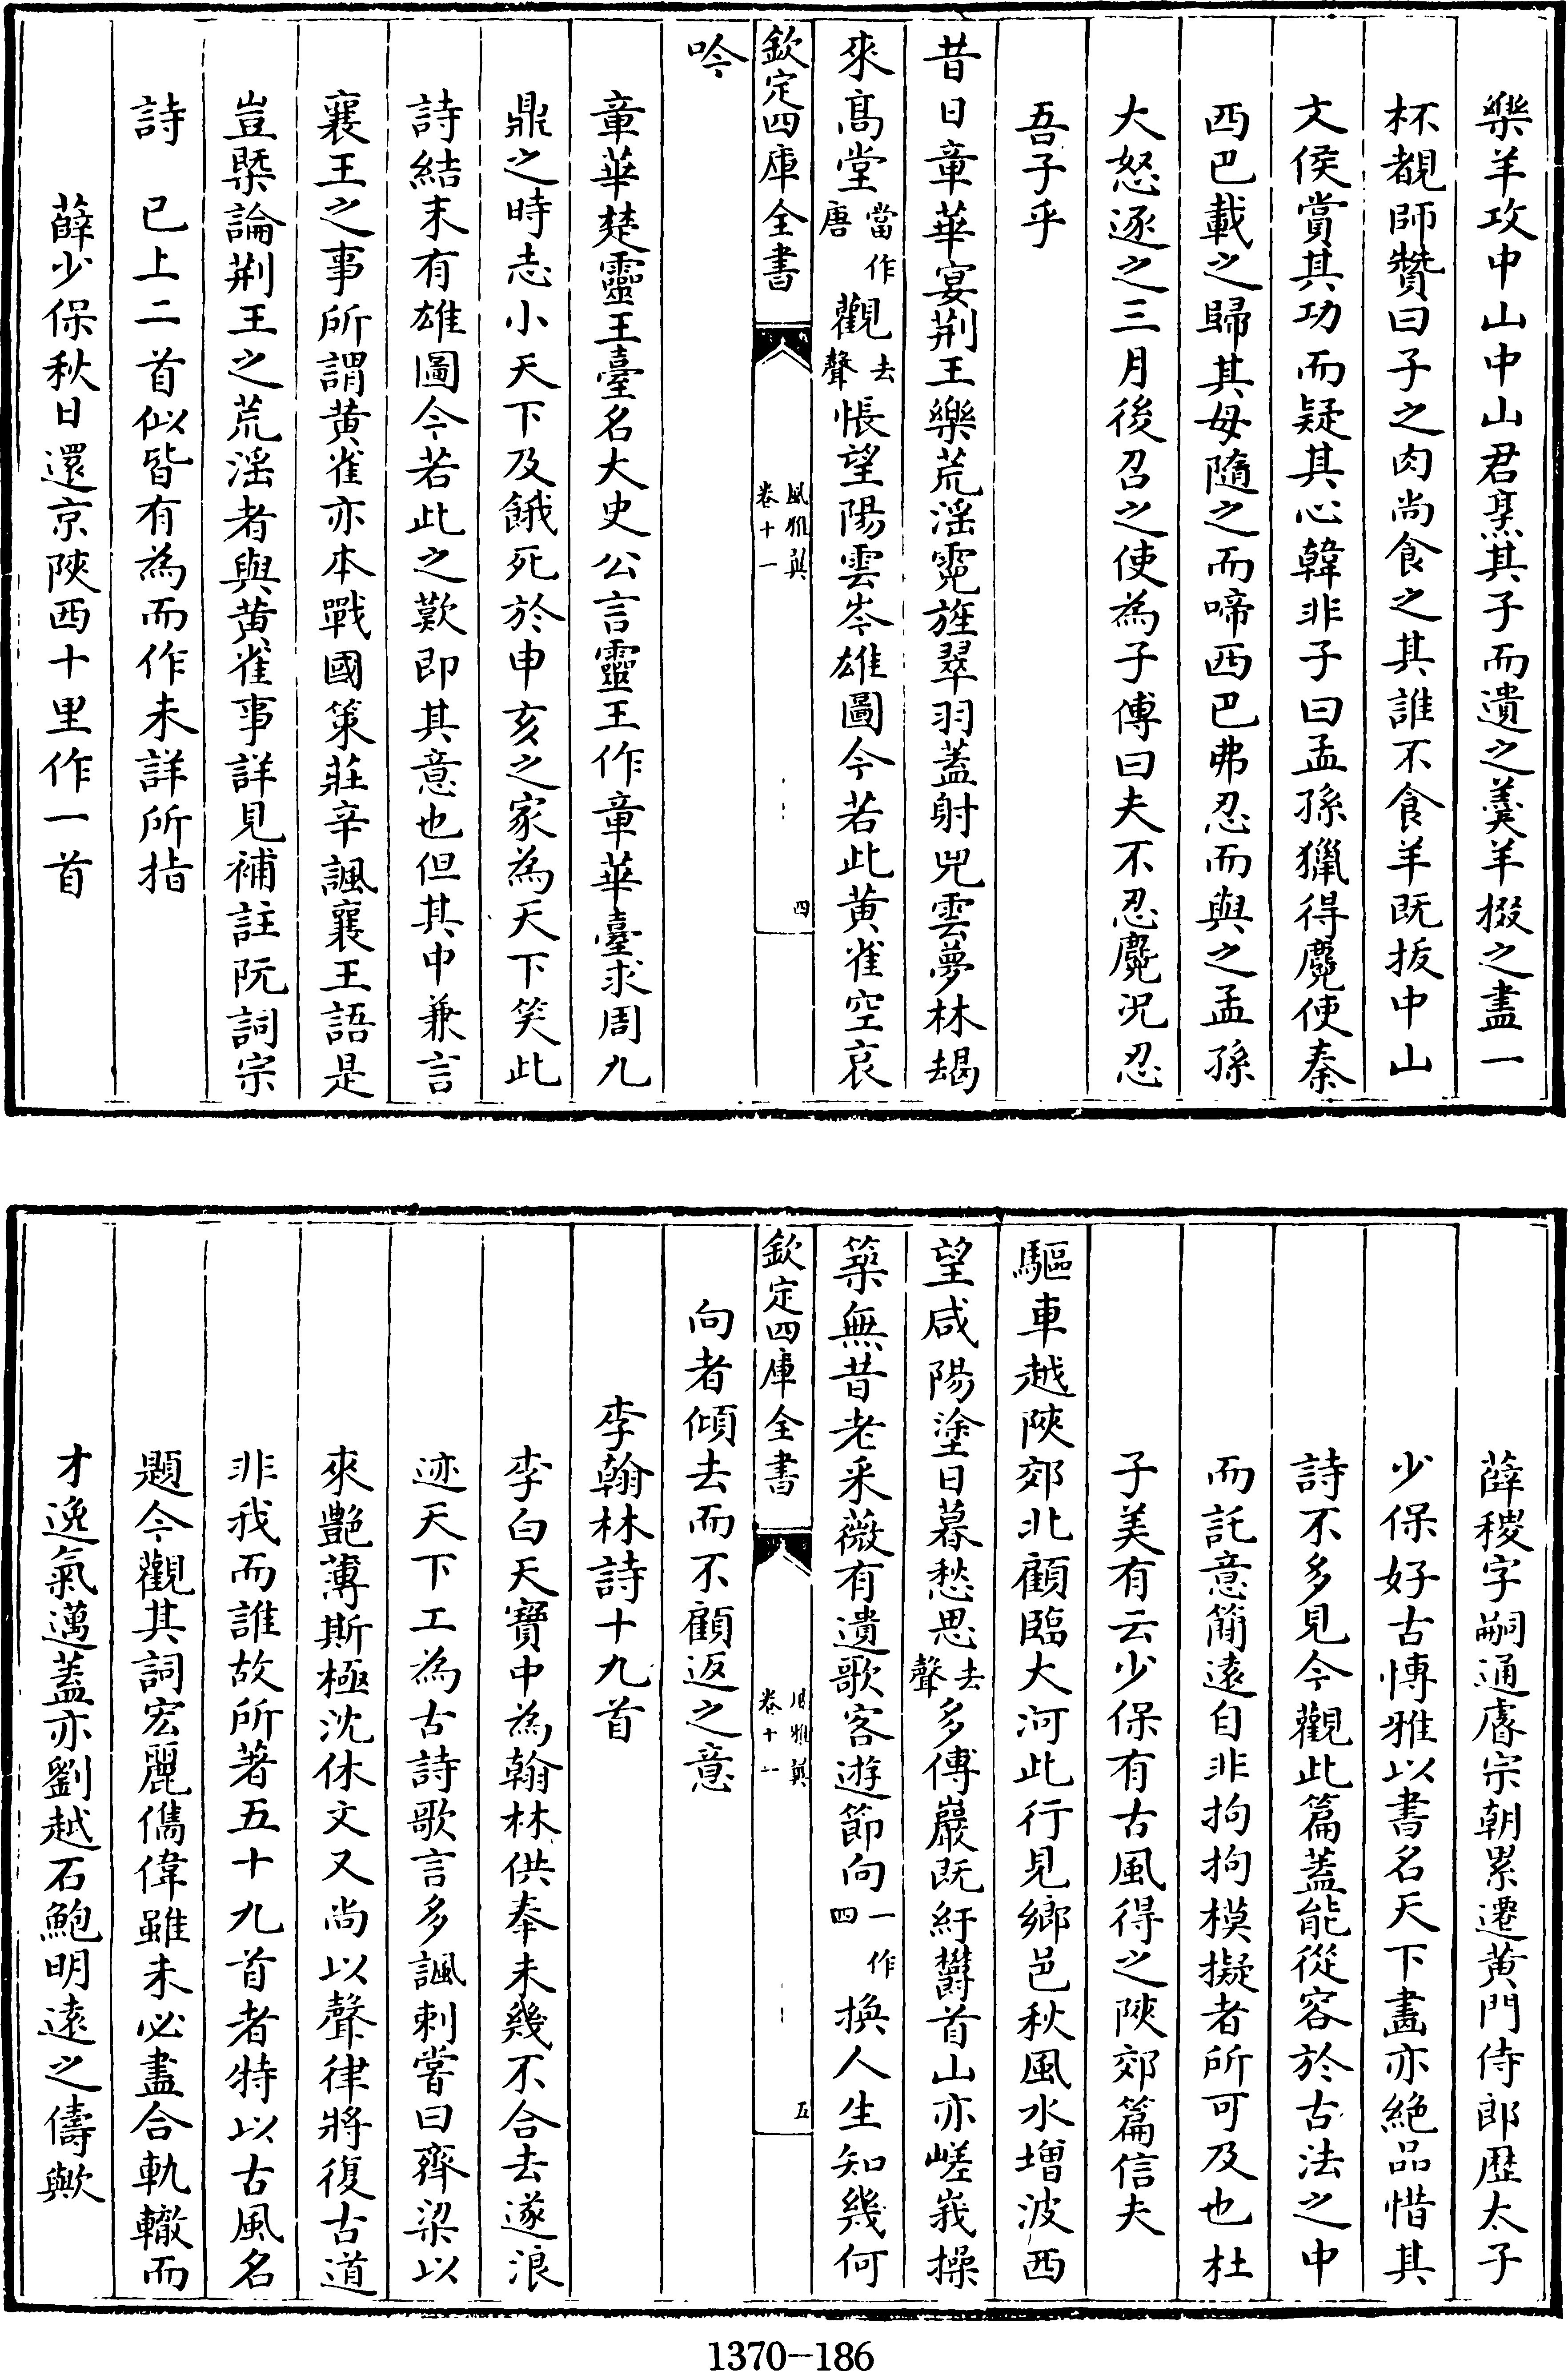 樂羊攻中山中山君烹其子而遺之羹羊掇之盡一
杯覩師贊曰子之肉尚食之其誰不食羊既拔中山
文侯賞其功而疑其心韓非子曰孟孫獵得麑使秦
西巴載之歸其母隨之而啼西巴弗忍而與之孟孫
大怒逐之三月後召之使為子傅曰夫不忍麑况忍
吾子乎
昔日章華宴荆王樂荒淫霓旌翠羽蓋射兕雲夢林朅
來髙堂當作唐觀去聲悵望陽雲岑雄圖今若此黄雀空哀
欽定四庫全書 風雅翼卷十一 四
吟
章華楚靈王臺名大史公言靈王作章華臺求周九
鼎之時志小天下及餓死於申亥之家為天下笑此
詩結末有雄圖今若此之歎即其意也但其中兼言
襄王之事所謂黄雀亦本戰國策莊辛諷襄王語是
豈槩論荆王之荒淫者與黄雀事詳見補註阮詞宗
詩 已上二首似皆有為而作未詳所指
薛少保秋日還京陜西十里作一首
薛稷字嗣通睿宗朝累遷黄門侍郎歴太子
少保好古愽雅以書名天下畫亦絶品惜其
詩不多見今觀此篇蓋能從容於古法之中
而託意簡遠自非拘拘模擬者所可及也杜
子美有云少保有古風得之陜郊篇信夫
驅車越陜郊北顧臨大河此行見鄉邑秋風水増波西
望咸陽塗日暮愁思去聲多傅巖既紆欝首山亦嵯峩操
築無昔老采薇有遺歌客遊節向一作四換人生知幾何
欽定四庫全書 風雅翼卷十一 五
向者傾去而不顧返之意
李翰林詩十九首
李白天寶中為翰林供奉未幾不合去遂浪
迹天下工為古詩歌言多諷刺嘗曰齊梁以
來艶薄斯極沈休文又尚以聲律將復古道
非我而誰故所著五十九首者特以古風名
題今觀其詞宏麗儁偉雖未必盡合軌轍而
才逸氣邁蓋亦劉越石鮑明遠之儔歟
1370-186